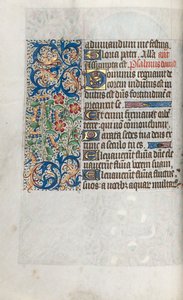 adiuvandum me festina.
Gloria patri. Alla. an̄
Assumpta est. Psalmus david
Dominus regnavit de
corem indutus est in
dutus est dn̄s fortitudinē et
precinxit se.
Etenim firmavit orbē ter
re, qui non commovebitur.
Parata sedes tua deus ex
tunc a seculo tu es.
Elevaverūt flumīa dn̄e ele
vaverūt flumīa vocem suam.
Elevaverūt flumīa fluctus
suos a vocibz aquar multar